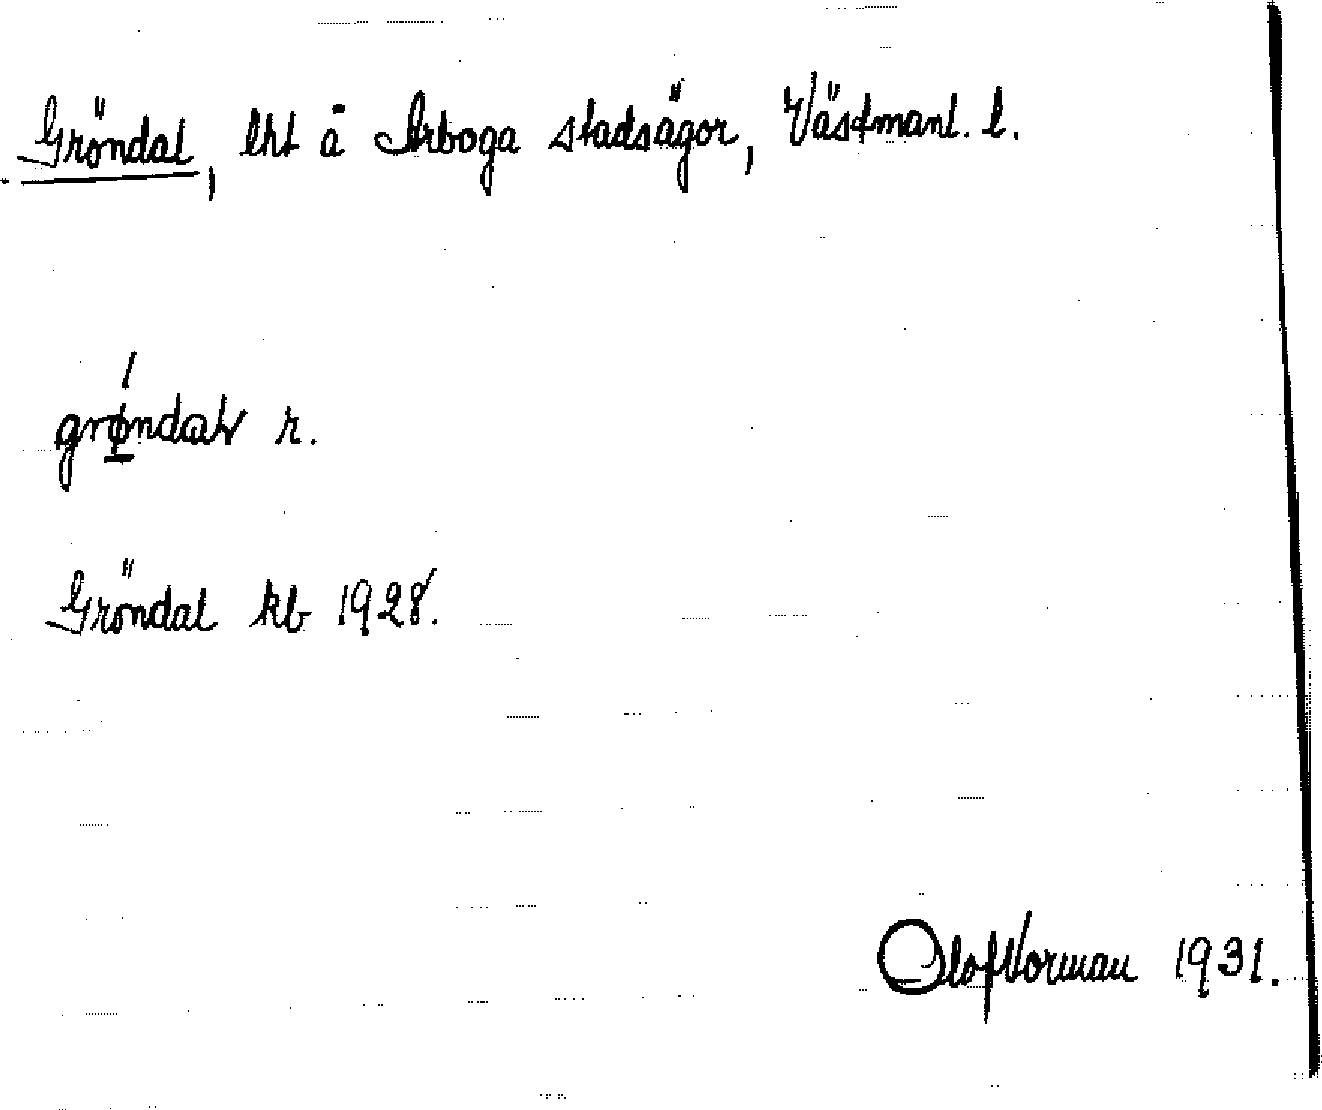 Gröndal, lht å Arboga stadsägor, Västmanl. l.
grøndaɫ r.
Gröndal kb 1928.
Olof Norman 1931.